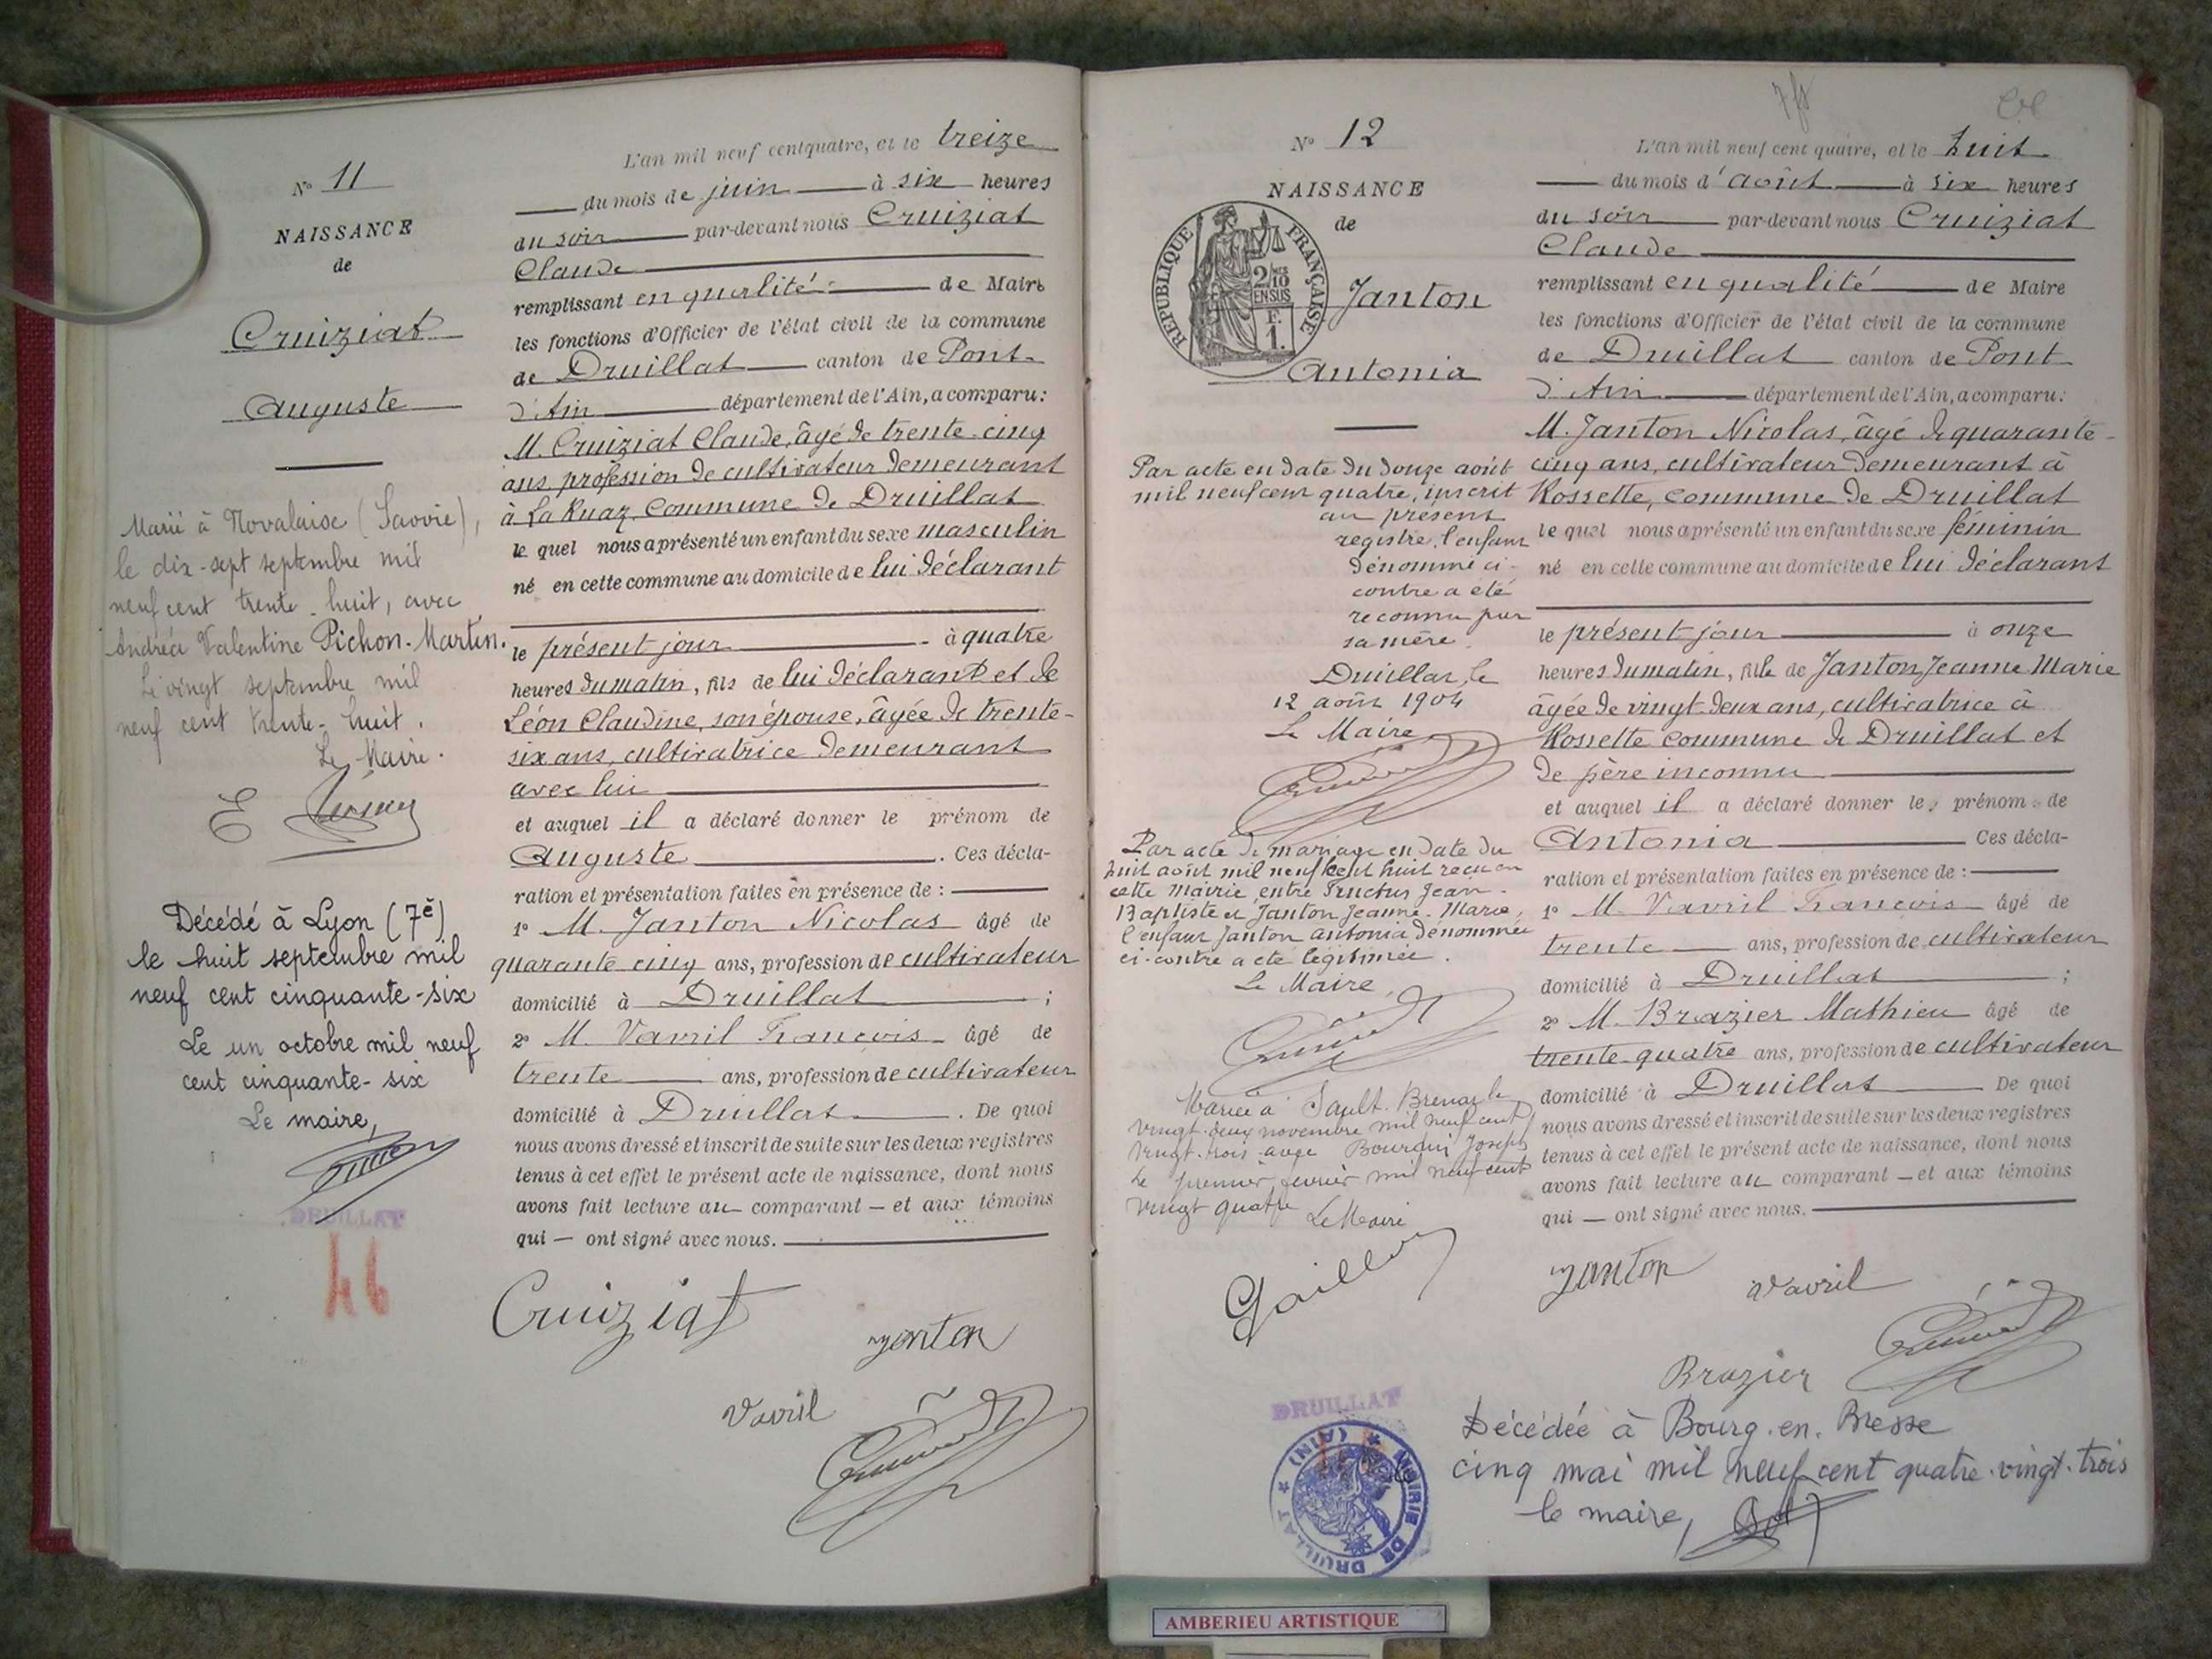 N° 11
NAISSANCE
de
Cruiziat
Auguste
Marié à Novalaise (Savoie),
le dix-sept septembre mil
neuf cent trente-huit, avec
Andréa Valentine Pichon-Martin.
Le vingt septembre mil
neuf cent trente-huit.
Le Maire.
Décédé à Lyon (7è)
le huit septembre mil
neuf cent cinquante-six
Le un octobre mil neuf
cent cinquante-six
Le maire,
DRUILLAT
46
L'an mil neuf centquatre, et le treize
du mois de juin à six heures
du soir par-devant nous Cruiziat
Claude
remplissant en qualité de Maire
les fonctions d'Officier de l'état civil de la commune
de Druillat canton de Pont-
d'Ain département de l'Ain, a comparu:
M. Cruiziat Claude, âgé de trente-cinq
ans profession de cultivateur demeurant
à La Ruaz, Commune de Druillat
le quel nous a présenté un enfant du sexe masculin
né en cette commune au domicile de lui déclarant
le présent jour à quatre
heures du matin, fils de lui déclarant et de
Léon Claudine, son épouse, âgée de trente-
six ans, cultivatrice demeurant
avec lui
et auquel il a déclaré donner le prénom de
Auguste. Ces décla-
ration et présentation faites en présence de :
1° M. Janton Nicolas âgé de
quarante cinq ans, profession de cultivateur
domicilié à Druillat ;
2° M. Vavril François âgé de
trente ans, profession de cultivateur
domicilié à Druillat. De quoi
nous avons dressé et inscrit de suite sur les deux registres
tenus à cet effet le présent acte de naissance, dont nous
avons fait lecture au comparant — et aux témoins
qui — ont signé avec nous.
Cruiziat
Janton
Vavril
N° 12
NAISSANCE
de
REPUBLIQUE FRANÇAISE
2/10 EN SUS
F.
1.
Janton
Antonia
Par acte en date du douze août
mil neuf cent quatre, inscrit
au présent
registre, l'enfant
dénommé ci-
contre a été
reconnu par
sa mère.
Druillat, le
12 août 1904
Le Maire
Par acte de mariage en date du
huit août mil neuf cent huit reçu en
cette mairie, entre Fructus Jean-
Baptiste et Janton Jeanne-Marie,
l'enfant Janton Antonia dénommée
ci-contre a été légitimée.
Le Maire,
Mariée à Sault-Brenaz le
vingt-deux novembre mil neuf cent
vingt-trois avec Bourdin Joseph
Le premier février mil neuf cent
vingt quatre
Le Maire
L'an mil neuf cent quatre, et le huit
du mois d'août à six heures
du soir par-devant nous Cruiziat
Claude
remplissant en qualité de Maire
les fonctions d'Officier de l'état civil de la commune
de Druillat canton de Pont
d'Ain département de l'Ain, a comparu:
M. Janton Nicolas, âgé de quarante-
cinq ans, cultivateur demeurant à
Rossette, commune de Druillat
le quel nous a présenté un enfant du sexe féminin
né en cette commune au domicile de lui déclarant
le présent jour à onze
heures du matin, fille de Janton Jeanne Marie
âgée de vingt-deux ans, cultivatrice à
Rossette commune de Druillat et
de père inconnu
et auquel il a déclaré donner le prénom de
Antonia Ces décla-
ration et présentation faites en présence de :
1° M. Vavril François âgé de
trente ans, profession de cultivateur
domicilié à Druillat ;
2° M. Brazier Mathieu âgé de
trente-quatre ans, profession de cultivateur
domicilié à Druillat De quoi
nous avons dressé et inscrit de suite sur les deux registres
tenus à cet effet le présent acte de naissance, dont nous
avons fait lecture au comparant — et aux témoins
qui — ont signé avec nous.
Janton
Vavril
Brazier
DRUILLAT
MAIRIE DE DRUILLAT (AIN)
Décédée à Bourg-en-Bresse
cinq mai mil neuf cent quatre-vingt-trois
le maire,
AMBERIEU ARTISTIQUE